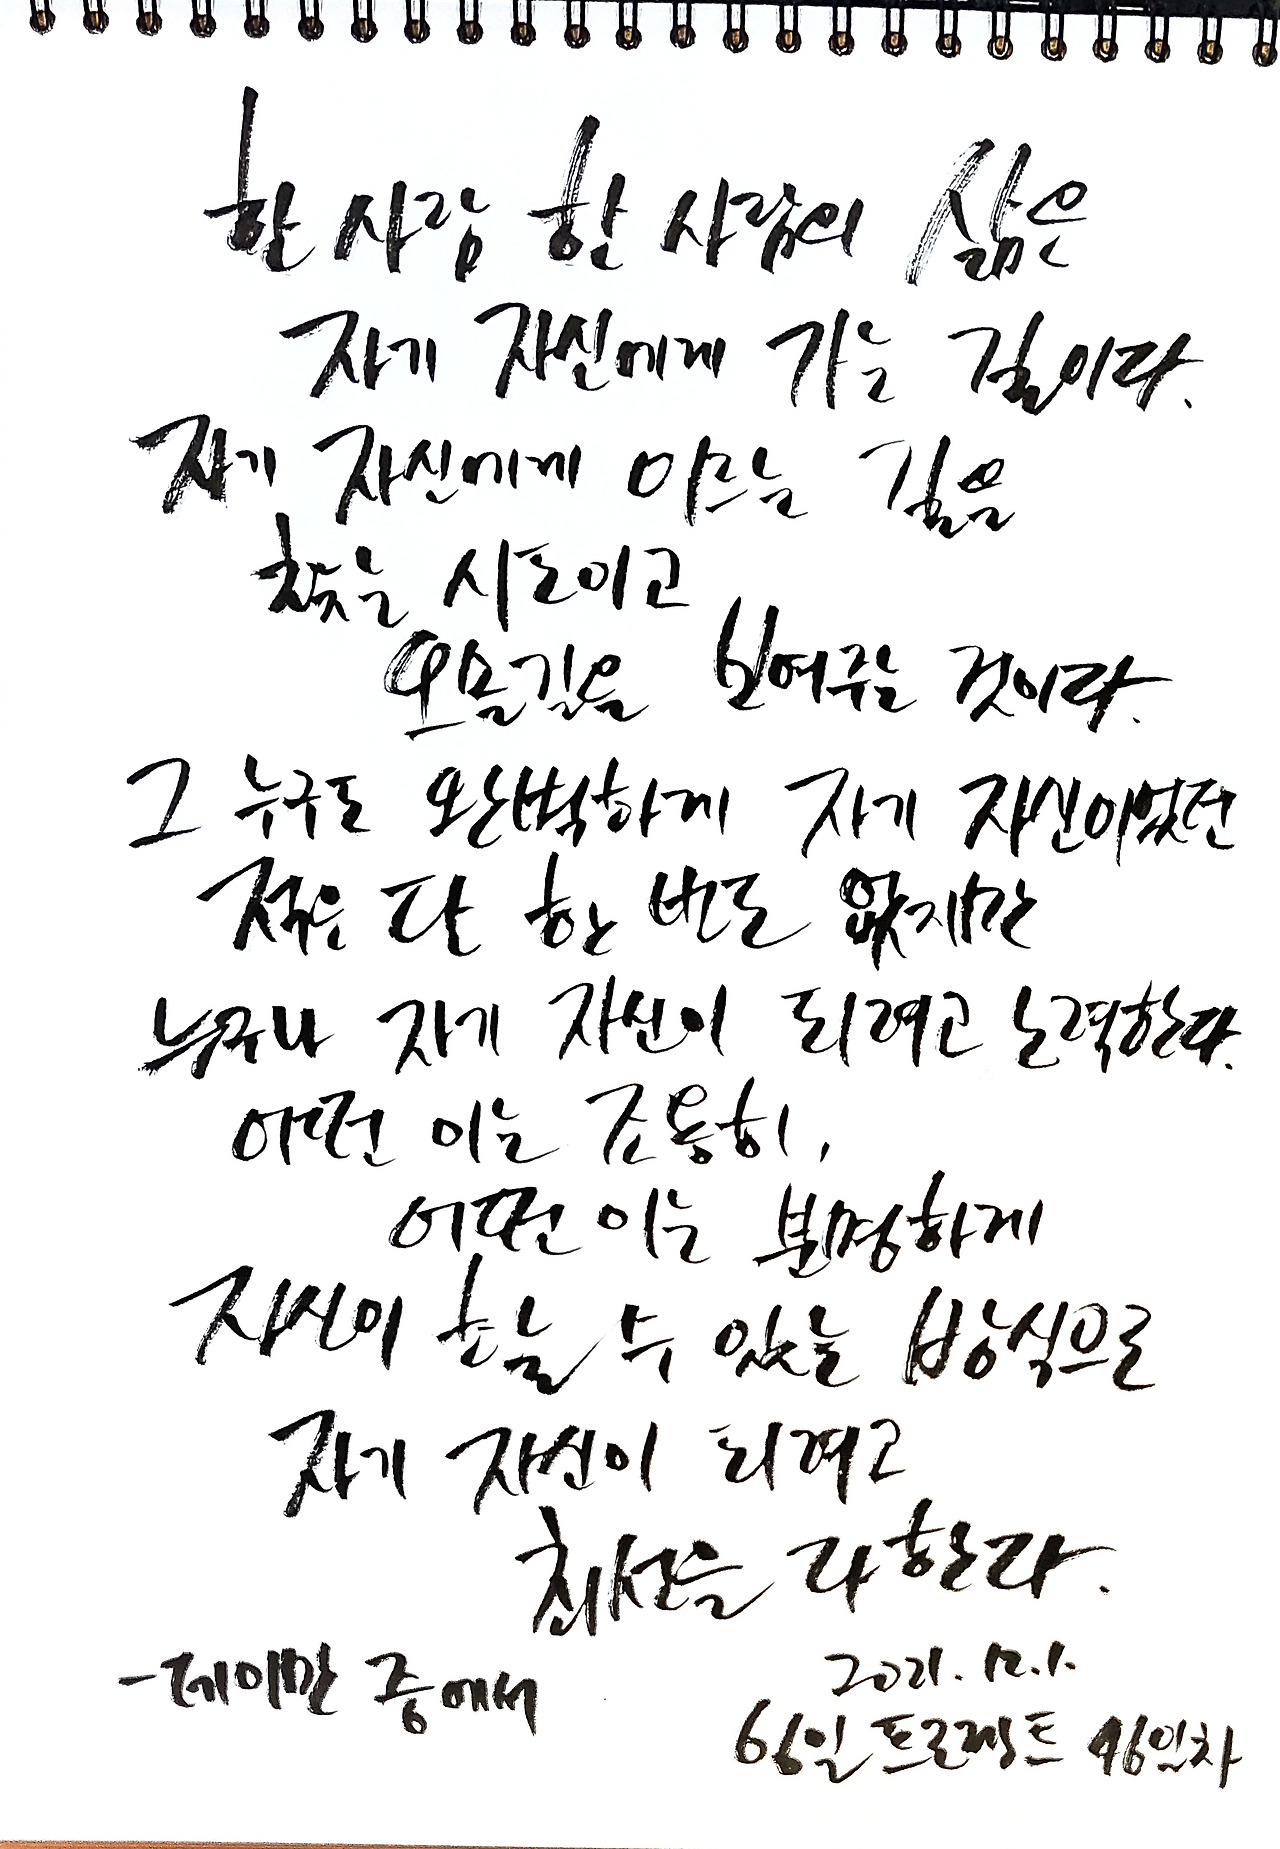 한 사람 한 사람의 삶은
자기 자신에게 가는 길이다.
자기 자신에게 이르는 길을
찾는 시도이고
오솔길을 보여주는 것이다.
그 누구도 완벽하게 자기 자신이었던
적은 단 한 번도 없지만
누구나 자기 자신이 되려고 노력한다.
어떤 이는 조용히,
어떤 이는 분명하게
자신이 할 수 있는 방식으로
자기 자신이 되려고
최선을 다한다.
-데미안 중에서
2021. 12. 1.
66일 프로젝트 46일차